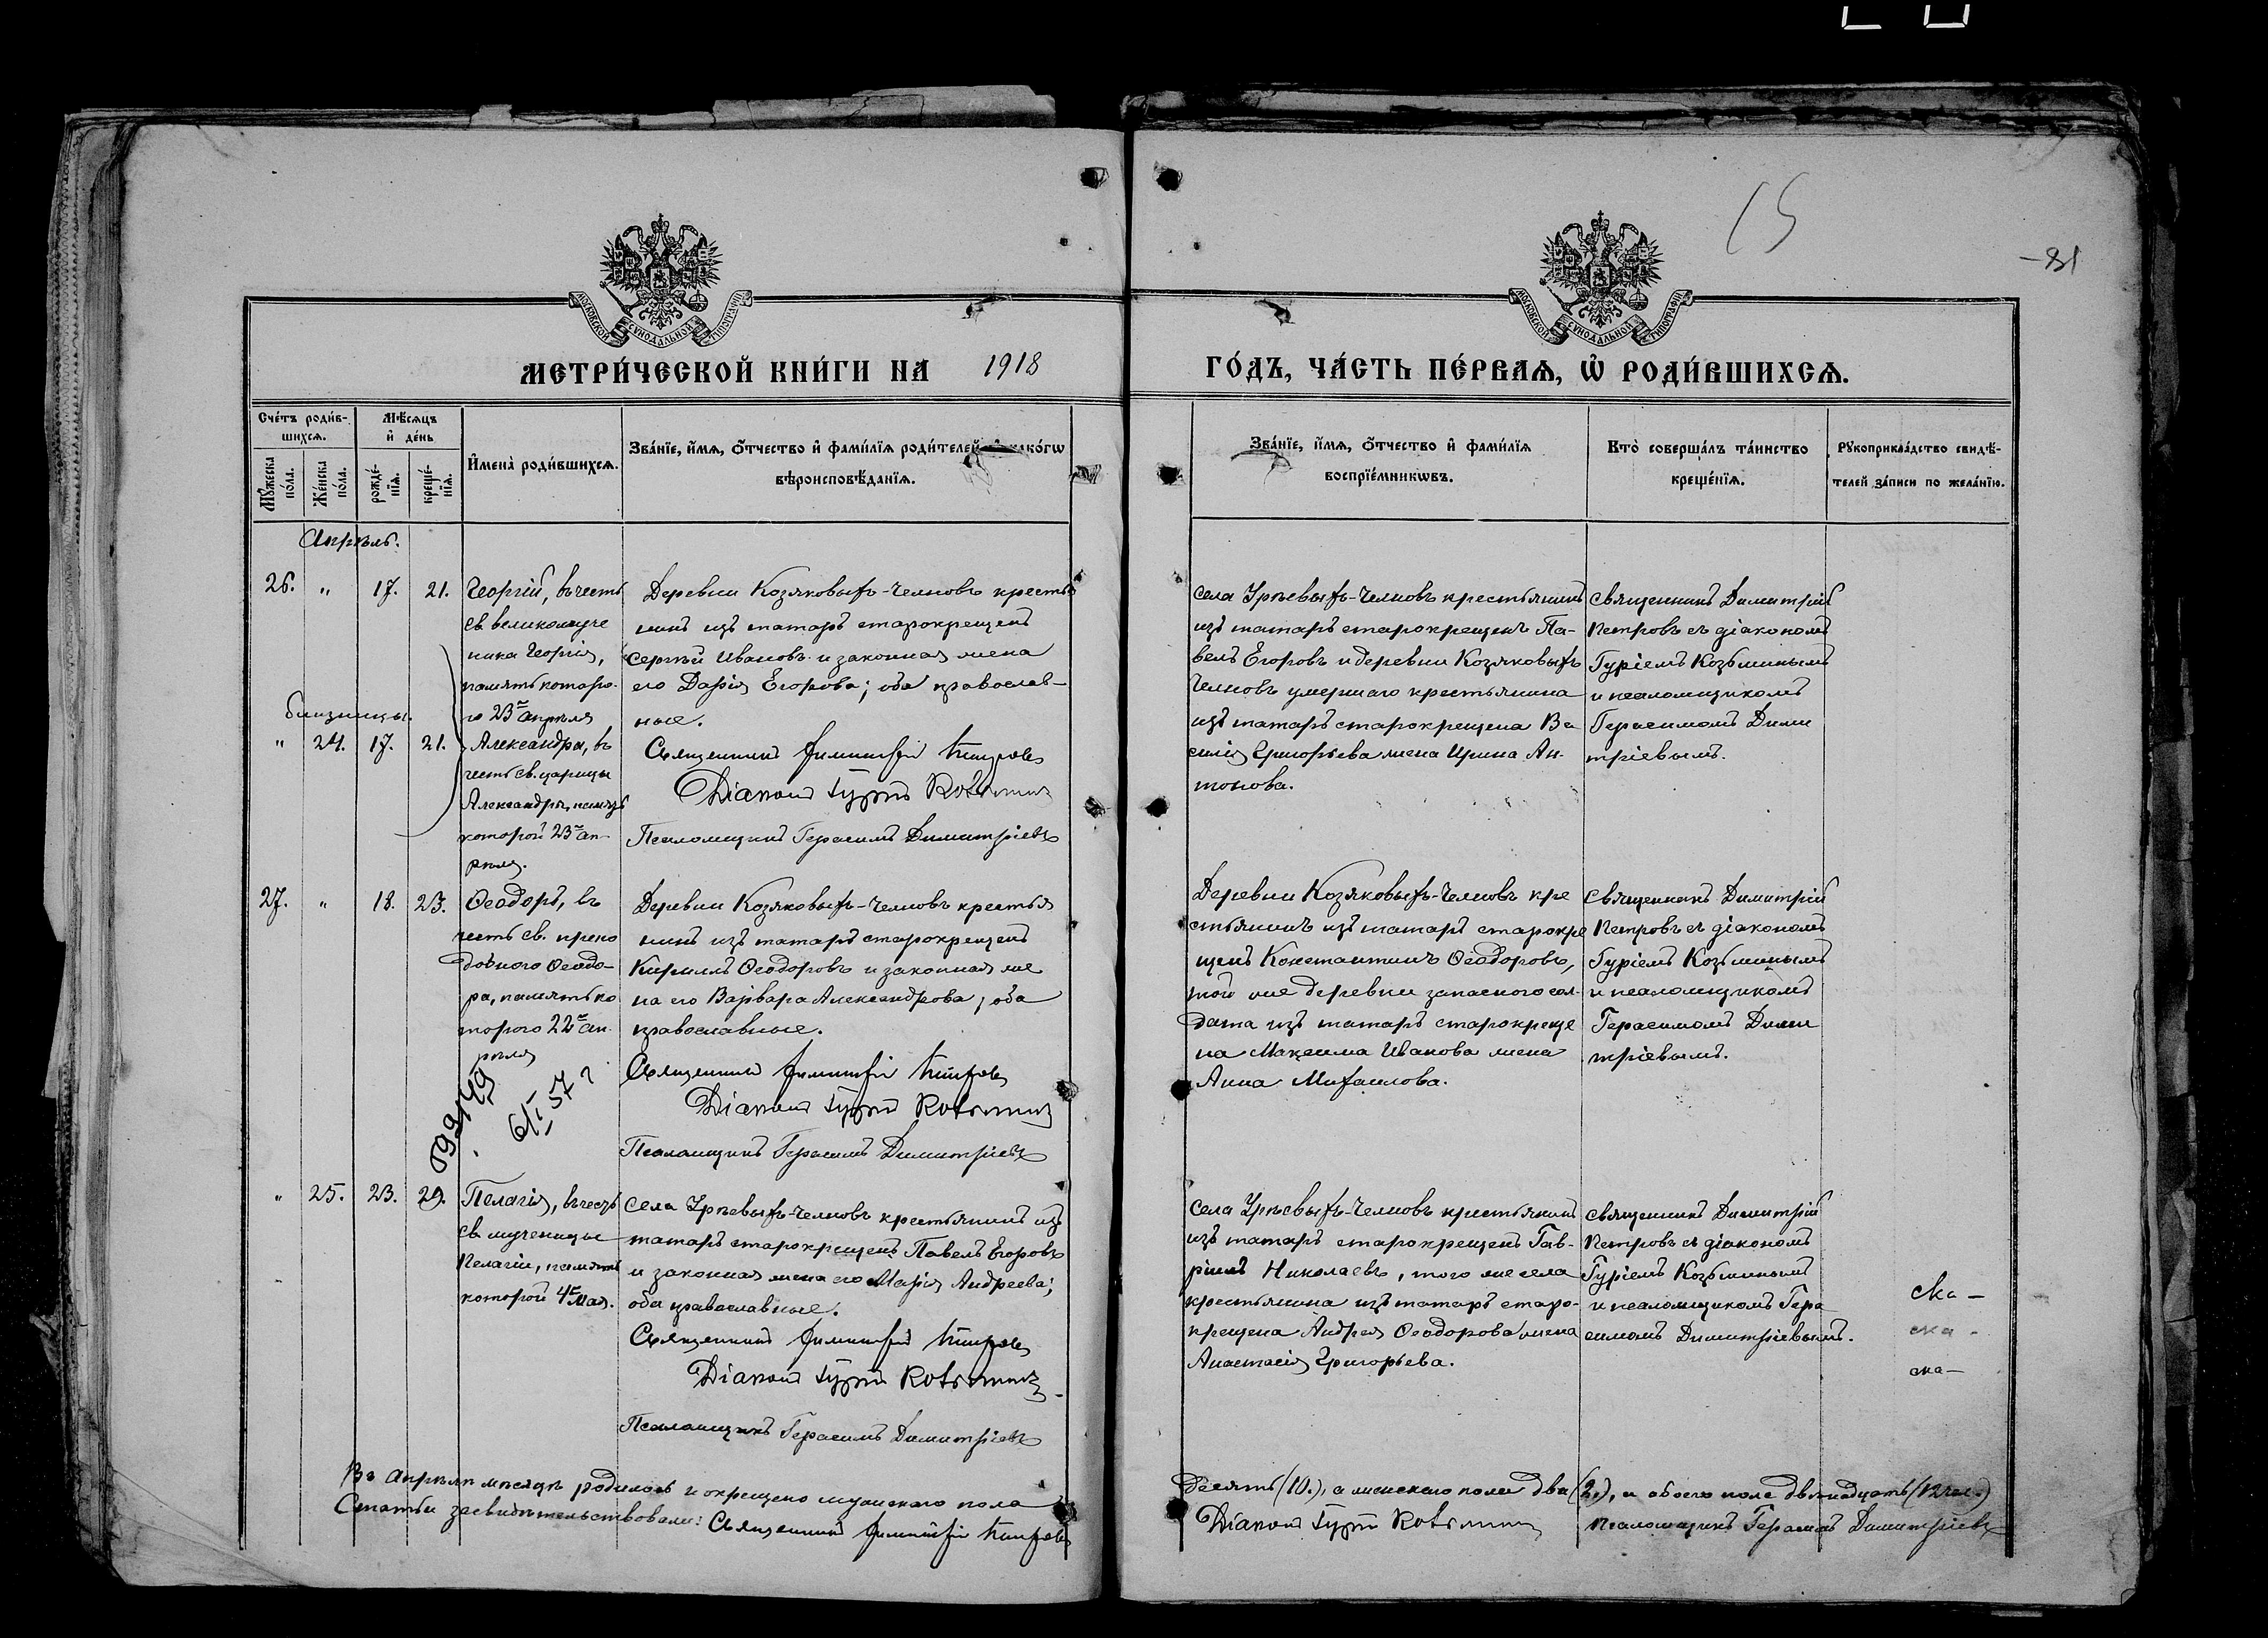 15
81
МОСКОВСКОЙ СѴНОДАЛЬНОЙ ТИПОГРАФІИ
МОСКОВСКОЙ СѴНОДАЛЬНОЙ ТИПОГРАФІИ
МЕТРИ́ЧЕСКОЙ КНИ́ГИ НА 1918
ГО́ДЪ, ЧА́СТЬ ПЕ́РВАѦ, Ѡ҆ РОДИ́ВШИХСѦ.
Сче́тъ роди́в-
шихсѧ.
Мѣ́сѧцъ
и҆ де́нь
Мꙋ́жеска по́ла.
Же́нска по́ла.
рожде́-нїѧ.
креще́-нїѧ.
И҆мена̀ роди́вшихсѧ.
Зва́нїе, и҆́мѧ, ѻ҆́тчество и҆ фами́лїѧ роди́телей, и҆ како́гѡ
вѣроисповѣ́данїѧ.
Зва́нїе, и҆́мѧ, ѻ҆́тчество и҆ фами́лїѧ
воспрїе́мникѡвъ.
Кто̀ соверша́лъ та́инство
креще́нїѧ.
Рꙋкоприкла́дство свидѣ́-
телей за́писи по жела́нїю.
Апрѣль.
26. " 17. 21.
Георгій, въ честь
св. великомуче
ника Георгія,
память которо-
го 23го апрѣля
Деревни Козяковыхъ-Челновъ крестья
нинъ изъ татаръ старокрещенъ
Сергѣй Ивановъ и законная жена
его Дарія Егорова; оба православ-
ные.
Села Урѣевыхъ-Челновъ крестьянинъ
изъ татаръ старокрещенъ Па-
велъ Егоровъ и деревни Козяковыхъ
Челновъ умершаго крестьянина
изъ татаръ старокрещена Ва
силія Григорьева жена Ирина Ан-
тонова.
Священникъ Димитрій
Петровъ съ діакономъ
Гуріемъ Козьминымъ
и псаломщикомъ
Герасимомъ Дими
тріевымъ.
близнецы.
" 24. 17. 21.
Александра, въ
честь св. царицы
Александры, память
которой 23го ап-
рѣля.
Священникъ Димитрій Петровъ
Діаконъ Гурій Козьминъ
Псаломщикъ Герасимъ Димитріевъ
27. " 18. 23.
Ѳеодоръ, въ
честь св. препо
добнаго Ѳеодо-
ра, память ко
тораго 22го ап-
рѣля
Деревни Козяковыхъ-Челновъ крестья
нинъ изъ татаръ старокрещенъ
Кириллъ Ѳеодоровъ и законная же
на его Варвара Александрова; оба
православные.
Священникъ Димитрій Петровъ
Діаконъ Гурій Козьминъ
Псаломщикъ Герасимъ Димитріевъ
Деревни Козяковыхъ-Челновъ кре
стьянинъ изъ татаръ старокре
щенъ Константинъ Ѳеодоровъ,
той же деревни запаснаго сол-
дата изъ татаръ старокреще
на Максима Иванова жена
Анна Михаилова.
Священникъ Димитрій
Петровъ съ діакономъ
Гуріемъ Козьминымъ
и псаломщикомъ
Герасимомъ Дими
тріевымъ.
" 25. 23. 29.
Пелагія, въ честь
св. мученицы
Пелагіи, память
которой 4го мая.
Села Урѣевыхъ-Челновъ крестьянинъ изъ
татаръ старокрещенъ Павелъ Егоровъ
и законная жена его Марія Андреева;
оба православные.
Священникъ Димитрій Петровъ
Діаконъ Гурій Козьминъ
Псаломщикъ Герасимъ Димитріевъ
Села Урѣевыхъ-Челновъ крестьянинъ
изъ татаръ старокрещенъ Гав-
ріилъ Николаевъ, того же села
крестьянина изъ татаръ старо-
крещена Андрея Ѳеодорова жена
Анастасія Григорьева.
Священникъ Димитрій
Петровъ съ діакономъ
Гуріемъ Козьминымъ
и псаломщикомъ Гера
симомъ Димитріевымъ.
Въ Апрѣлѣ мѣсяцѣ родилось и окрещено мужескаго пола
Десять (10.), а женскаго пола два (2.), и обоего пола двѣнадцать (12 чел.)
Статьи засвидѣтельствовали: Священникъ Димитрій Петровъ
Діаконъ Гурій Козьминъ Псаломщикъ Герасимъ Димитріевъ